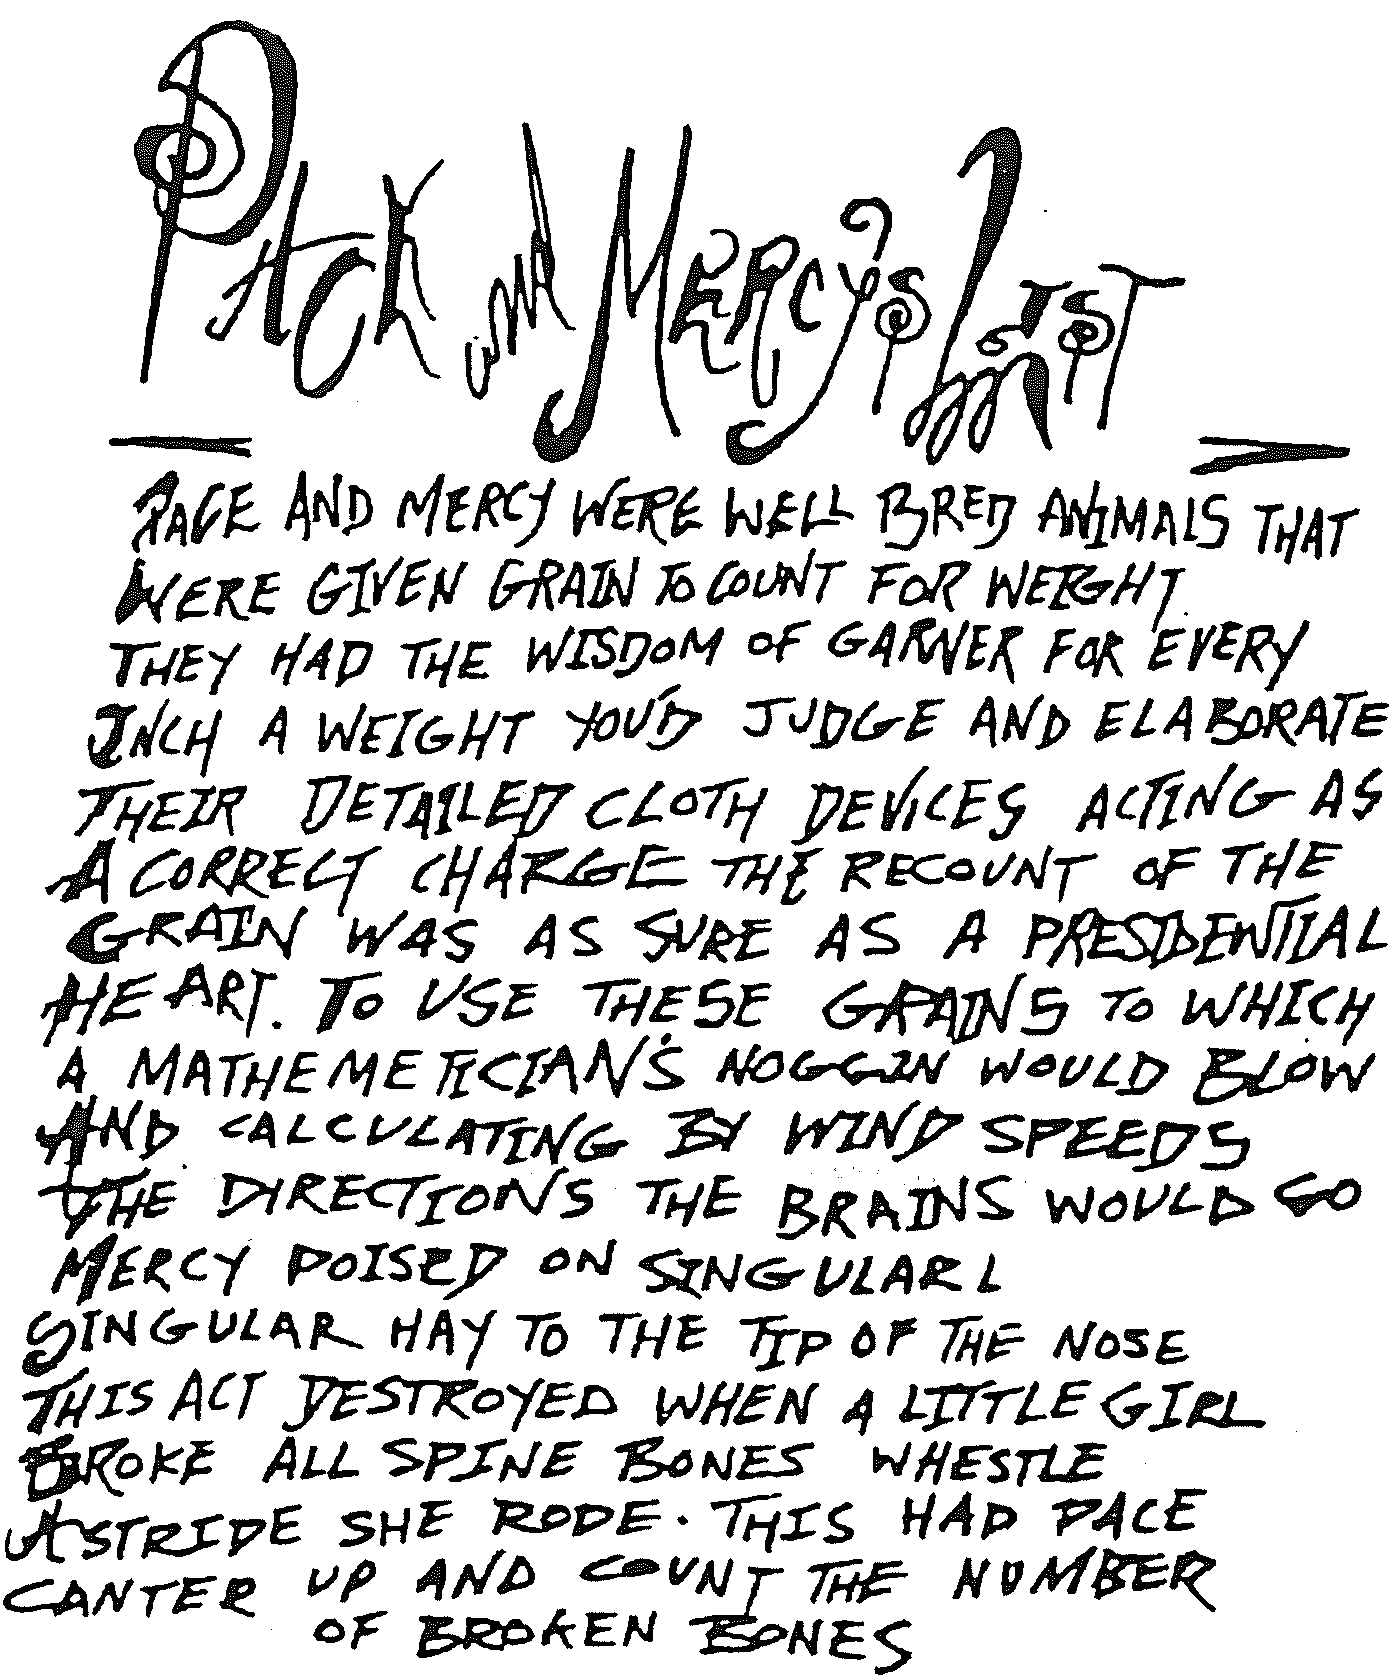 Pack and Mercy's Last
PACE AND MERCY WERE WELL BRED ANIMALS THAT
WERE GIVEN GRAIN TO COUNT FOR WEIGHT
THEY HAD THE WISDOM OF GARNER FOR EVERY
INCH A WEIGHT YOU'D JUDGE AND ELABORATE
THEIR DETAILED CLOTH DEVICES ACTING AS
A CORRECT CHARGE THE RECOUNT OF THE
GRAIN WAS AS SURE AS A PRESIDENTIAL
HEART. TO USE THESE GRAINS TO WHICH
A MATHEMETICIAN'S NOGGIN WOULD BLOW
AND CALCULATING BY WIND SPEEDS
THE DIRECTIONS THE BRAINS WOULD GO
MERCY POISED ON SINGULAR L
SINGULAR HAY TO THE TIP OF THE NOSE
THIS ACT DESTROYED WHEN A LITTLE GIRL
BROKE ALL SPINE BONES WHESTLE
ASTRIDE SHE RODE. THIS HAD PACE
CANTER UP AND COUNT THE NUMBER
OF BROKEN BONES